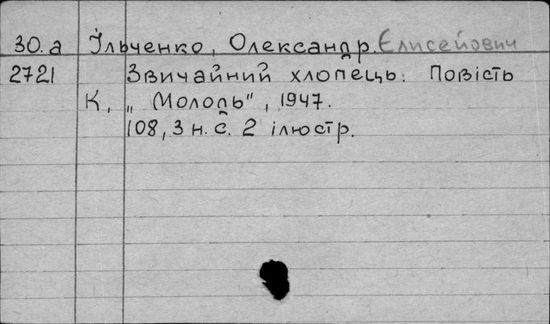 30.а Ільченко, Олександр. Єлисейович
2721 Звичайний хлопець. Повість
К, „Молодь", 1947.
108, 3 н. с. 2 ілюстр.